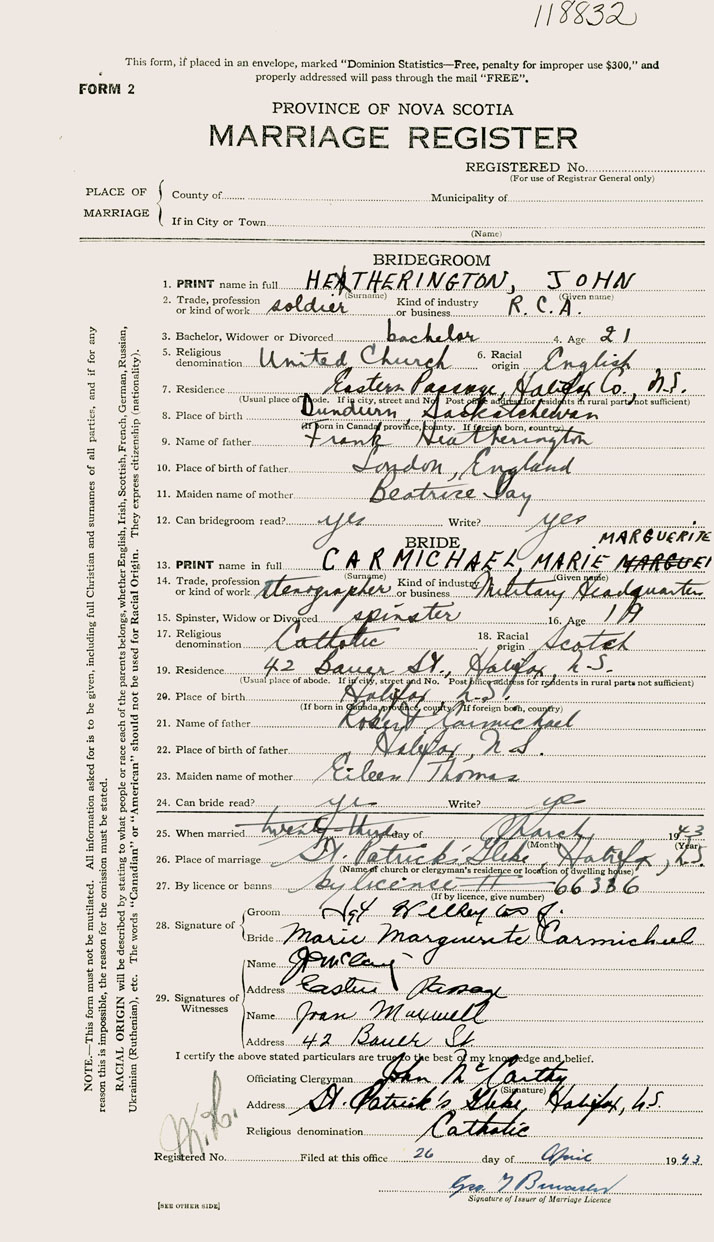 118832
This form, if placed in an envelope, marked "Dominion Statistics—Free, penalty for improper use $300," and
properly addressed will pass through the mail "FREE".
FORM 2
PROVINCE OF NOVA SCOTIA
MARRIAGE REGISTER
REGISTERED No.
(For use of Registrar General only)
PLACE OF MARRIAGE
County of Municipality of
If in City or Town
(Name)
NOTE.—This form must not be mutilated. All information asked for is to be given, including full Christian and surnames of all parties, and if for any
reason this is impossible, the reason for the omission must be stated.
RACIAL ORIGIN will be described by stating to what people or race each of the parents belongs, whether English, Irish, Scottish, French, German, Russian,
Ukrainian (Ruthenian), etc. The words "Canadian" or "American" should not be used for Racial Origin. They express citizenship (nationality).
BRIDEGROOM
1. PRINT name in full HEATHERINGTON, JOHN
(Surname) (Given name)
2. Trade, profession or kind of work soldier Kind of industry or business R.C.A.
3. Bachelor, Widower or Divorced bachelor 4. Age 21
5. Religious denomination United Church 6. Racial origin English
7. Residence Eastern Passage, Halifax Co., N.S.
(Usual place of abode. If in city, street and No. Post office address for residents in rural parts not sufficient)
8. Place of birth Dundurn, Saskatchewan
(If born in Canada, province, county. If foreign born, country)
9. Name of father Frank Heatherington
10. Place of birth of father London, England
11. Maiden name of mother Beatrice
12. Can bridegroom read? yes Write? yes
BRIDE
MARGUERITE
13. PRINT name in full CARMICHAEL, MARIE MARGUEI
(Surname) (Given name)
14. Trade, profession or kind of work stenographer Kind of industry or business Military Headquarters
15. Spinster, Widow or Divorced spinster 16. Age 19
17. Religious denomination Catholic 18. Racial origin Scotch
19. Residence 42 Bauer St., Halifax, N.S.
(Usual place of abode. If in city, street and No. Post office address for residents in rural parts not sufficient)
20. Place of birth Halifax N.S.
(If born in Canada, province, county. If foreign born, country)
21. Name of father Robert Carmichael
22. Place of birth of father Halifax, N.S.
23. Maiden name of mother Eileen Thomas
24. Can bride read? yes Write? yes
25. When married twenty-third day of March 1943
(Month) (Year)
26. Place of marriage St. Patrick's Glebe, Halifax, N.S.
(Name of church or clergyman's residence or location of dwelling house)
27. By licence or banns by license # 66386
(If by licence, give number)
28. Signature of
Groom
Bride Marie Marguerite Carmichael
29. Signatures of Witnesses
Name
Address Eastern Passage
Name Joan Maxwell
Address 42 Bauer St.
I certify the above stated particulars are true to the best of my knowledge and belief.
Officiating Clergyman John McCarthy
(Signature)
Address St. Patrick's Glebe, Halifax, N.S.
Religious denomination Catholic
Registered No. Filed at this office 26 day of April 1943
Signature of Issuer of Marriage Licence
[SEE OTHER SIDE]